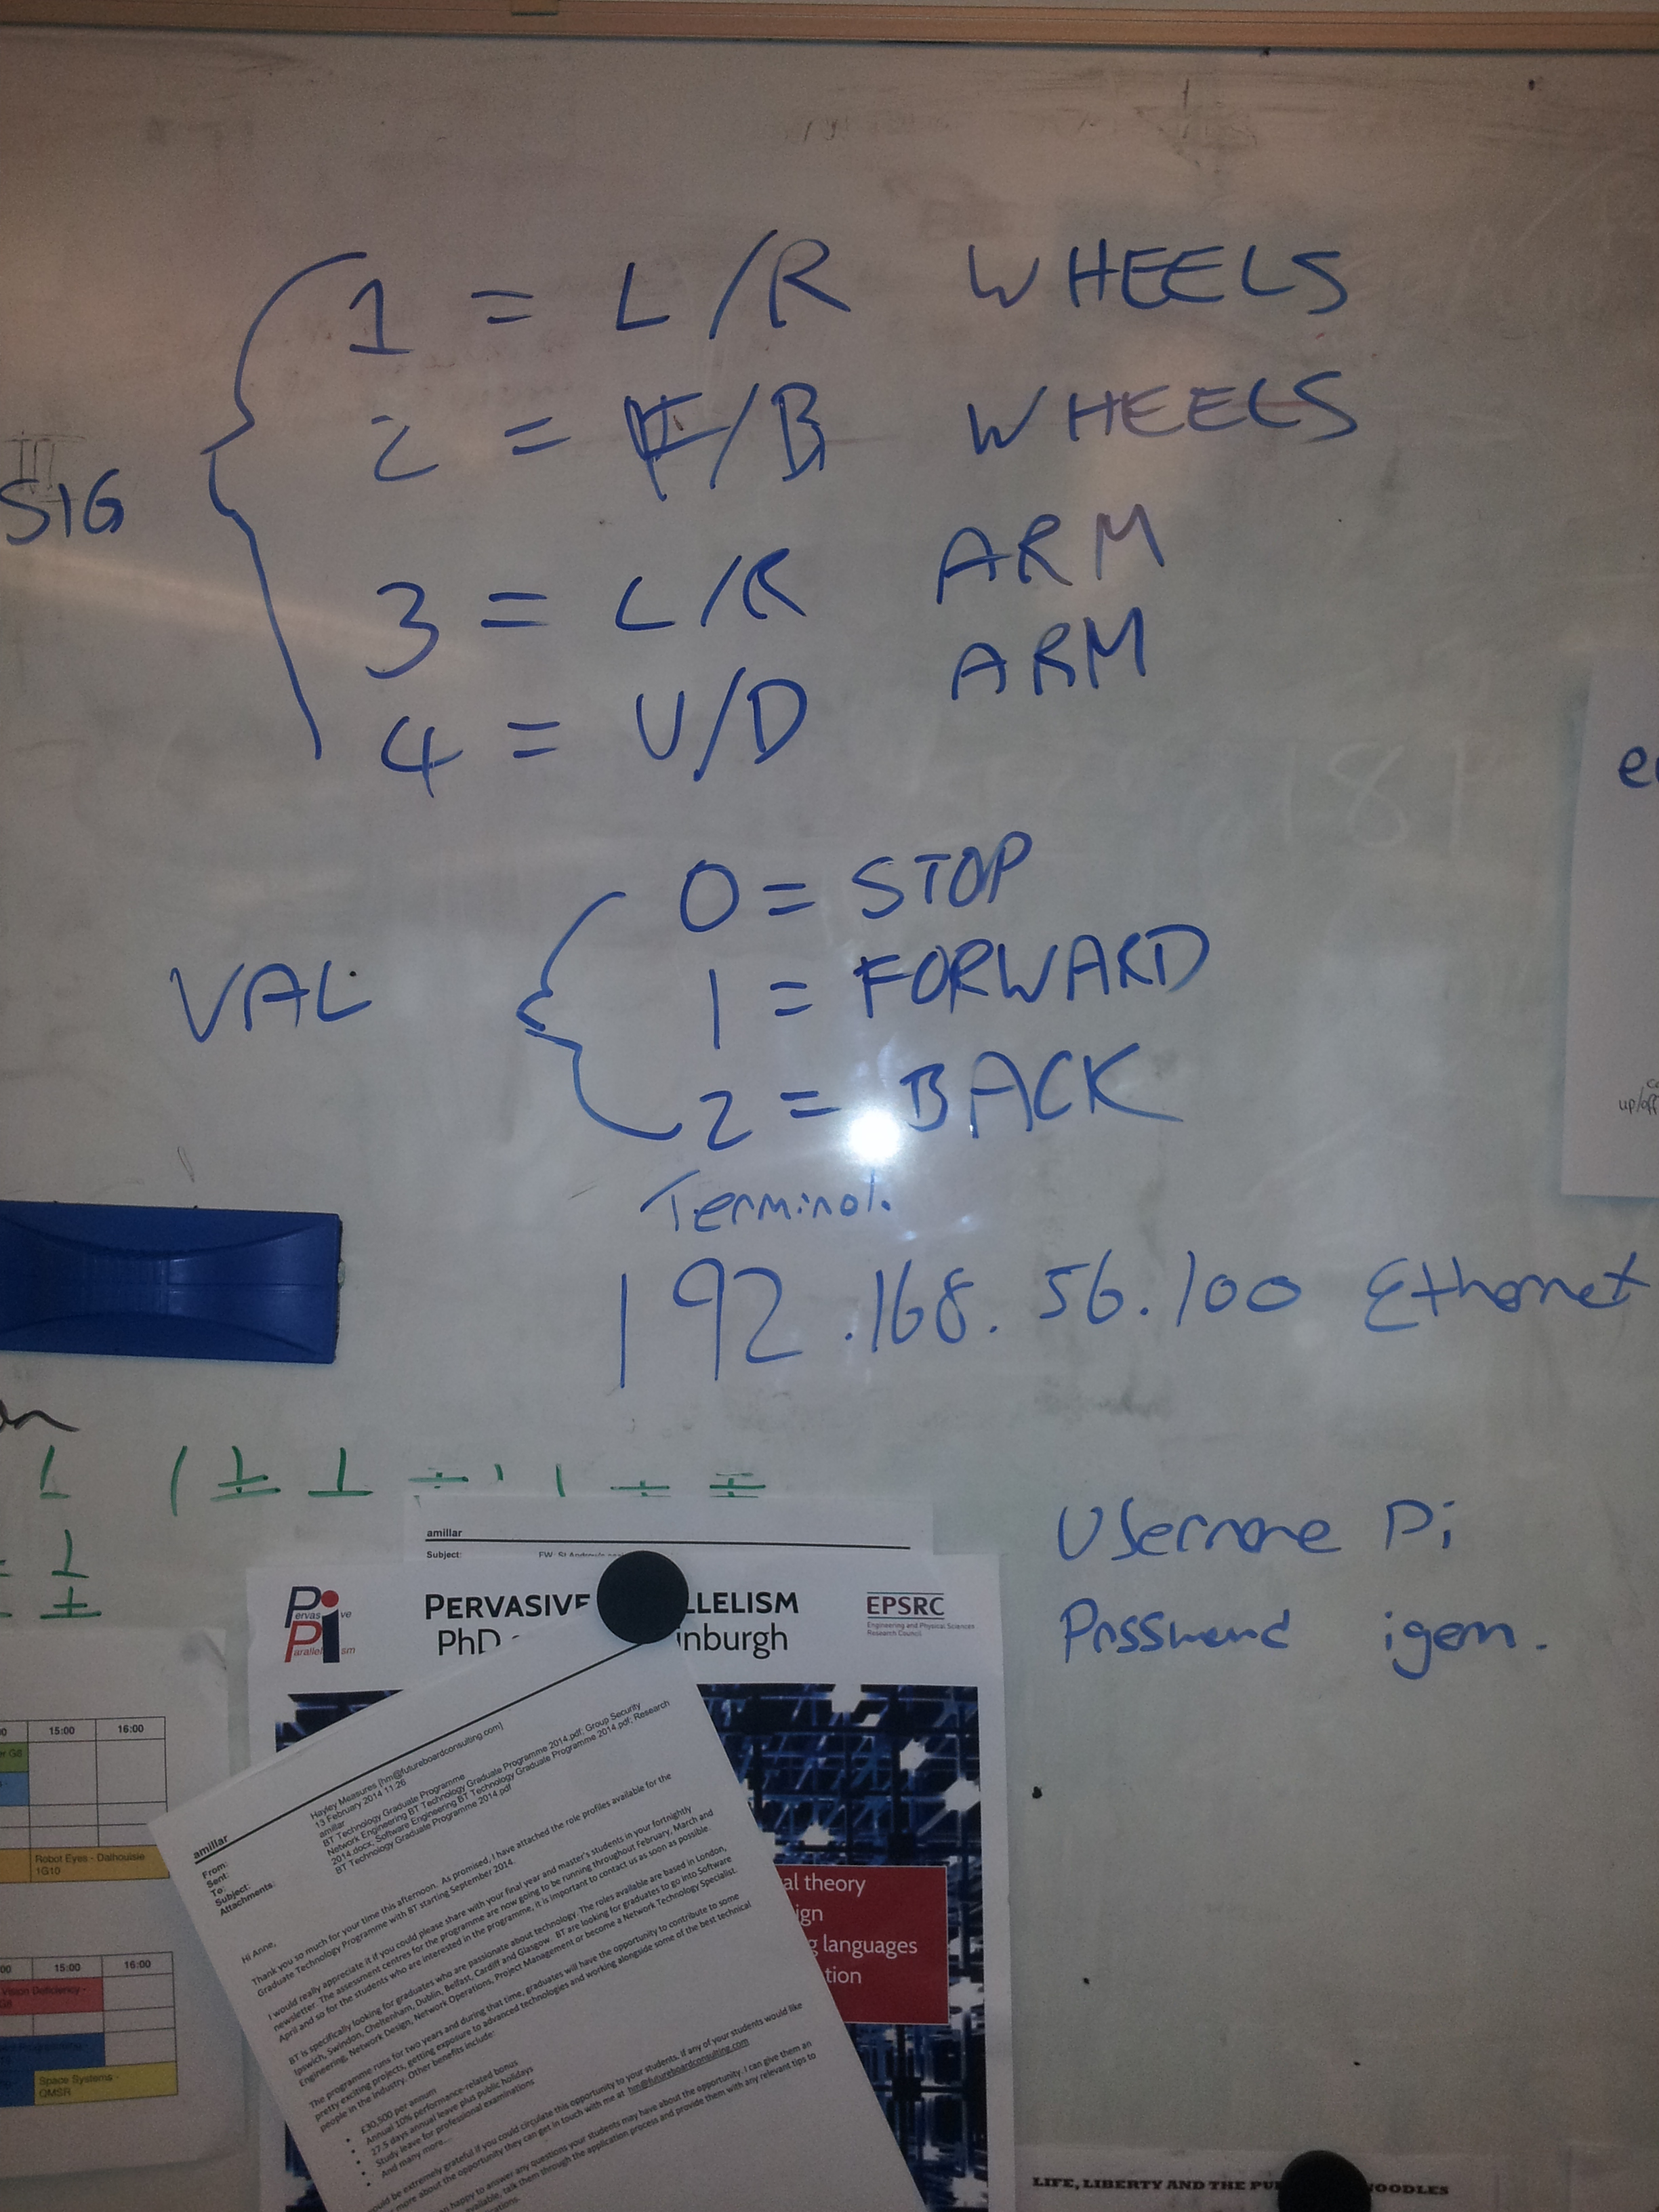 1 = L/R WHEELS
2 = F/B WHEELS
SIG
3 = L/R ARM
4 = U/D ARM
0 = STOP
1 = FORWARD
VAL
2 = BACK
Terminal.
192.168.56.100 Ethernet
Username Pi
Password igem.
amillar
Subject:
PERVASIVE LLELISM
PhD inburgh
EPSRC
Engineering and Physical Sciences
Research Council
amillar
From: Hayley Measures [hm@futureboardconsulting.com]
Sent: 13 February 2014 11:26
To: amillar
Subject: BT Technology Graduate Programme
Attachments: Network Engineering BT Technology Graduate Programme 2014.pdf; Group Security
2014.docx; Software Engineering BT Technology Graduate Programme 2014.pdf; Research
BT Technology Graduate Programme 2014.pdf
Hi Anne,
Thank you so much for your time this afternoon. As promised, I have attached the role profiles available for the
Graduate Technology Programme with BT starting September 2014.
I would really appreciate it if you could please share with your final year and master's students in your fortnightly
newsletter. The assessment centres for the programme are now going to be running throughout February, March and
April and so for the students who are interested in the programme, it is important to contact us as soon as possible.
BT is specifically looking for graduates who are passionate about technology. The roles available are based in London,
Ipswich, Swindon, Cheltenham, Dublin, Belfast, Cardiff and Glasgow. BT are looking for graduates to go into Software
Engineering, Network Design, Network Operations, Project Management or become a Network Technology Specialist.
The programme runs for two years and during that time, graduates will have the opportunity to contribute to some
pretty exciting projects, getting exposure to advanced technologies and working alongside some of the best technical
people in the industry. Other benefits include:
• £30,500 per annum
• Annual 10% performance-related bonus
• 27.5 days annual leave plus public holidays
• Study leave for professional examinations
• And many more...
be extremely grateful if you could circulate this opportunity to your students. If any of your students would like
more about the opportunity they can get in touch with me at hm@futureboardconsulting.com
happy to answer any questions your students may have about the opportunity. I can give them an
available, talk them through the application process and provide them with any relevant tips to
al theory
ign
languages
tion
15:00 16:00
Robot Eyes - Dalhousie
1G10
15:00 16:00
Vision Deficiency -
Space Systems -
QMSR
LIFE, LIBERTY AND THE PU NOODLES